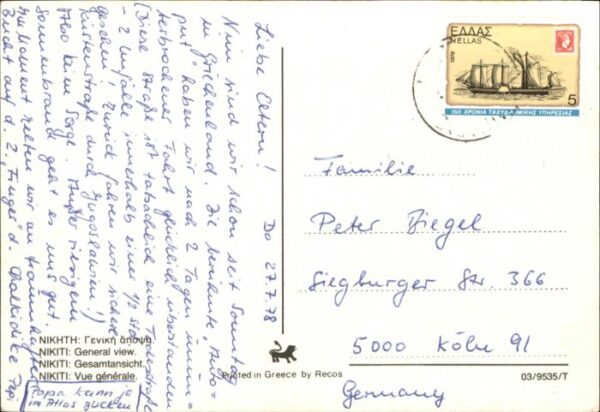 Do 27.7.78
Liebe Eltern!
Nun sind wir schon seit Sonntag
in Griechenland. Die berühmte "Auto=
put" haben wir nach 2 Tagen unun=
terbrochener Fahrt glücklich überstanden
(Diese Straße ist tatsächlich eine Todesstraße
- 2 Unfälle innerhalb einer 1/2 Std.
gesehen! Zurück fahren wir sicher
Küstenstraße durch Jugoslawien!)
Also keine Sorge. Außer riesigem
Sonnenbrand geht es uns gut.
Im Moment zelten wir an
Bucht auf d. 2. "Finger" d. Chalkidike
Papa kann ja
im Atlas gucken
ΕΛΛΑΣ
HELLAS
1978
5
150 ΧΡΟΝΙΑ ΤΑΧΥΔΡΟΜΙΚΗΣ ΥΠΗΡΕΣΙΑΣ
Familie
Peter Biegel
Siegburger Str. 366
5000 Köln 91
Germany
ΝΙΚΗΤΗ: Γενική άποψη.
NIKITI: General view.
NIKITI: Gesamtansicht.
NIKITI: Vue générale.
Printed in Greece by Recos
03/9535/T